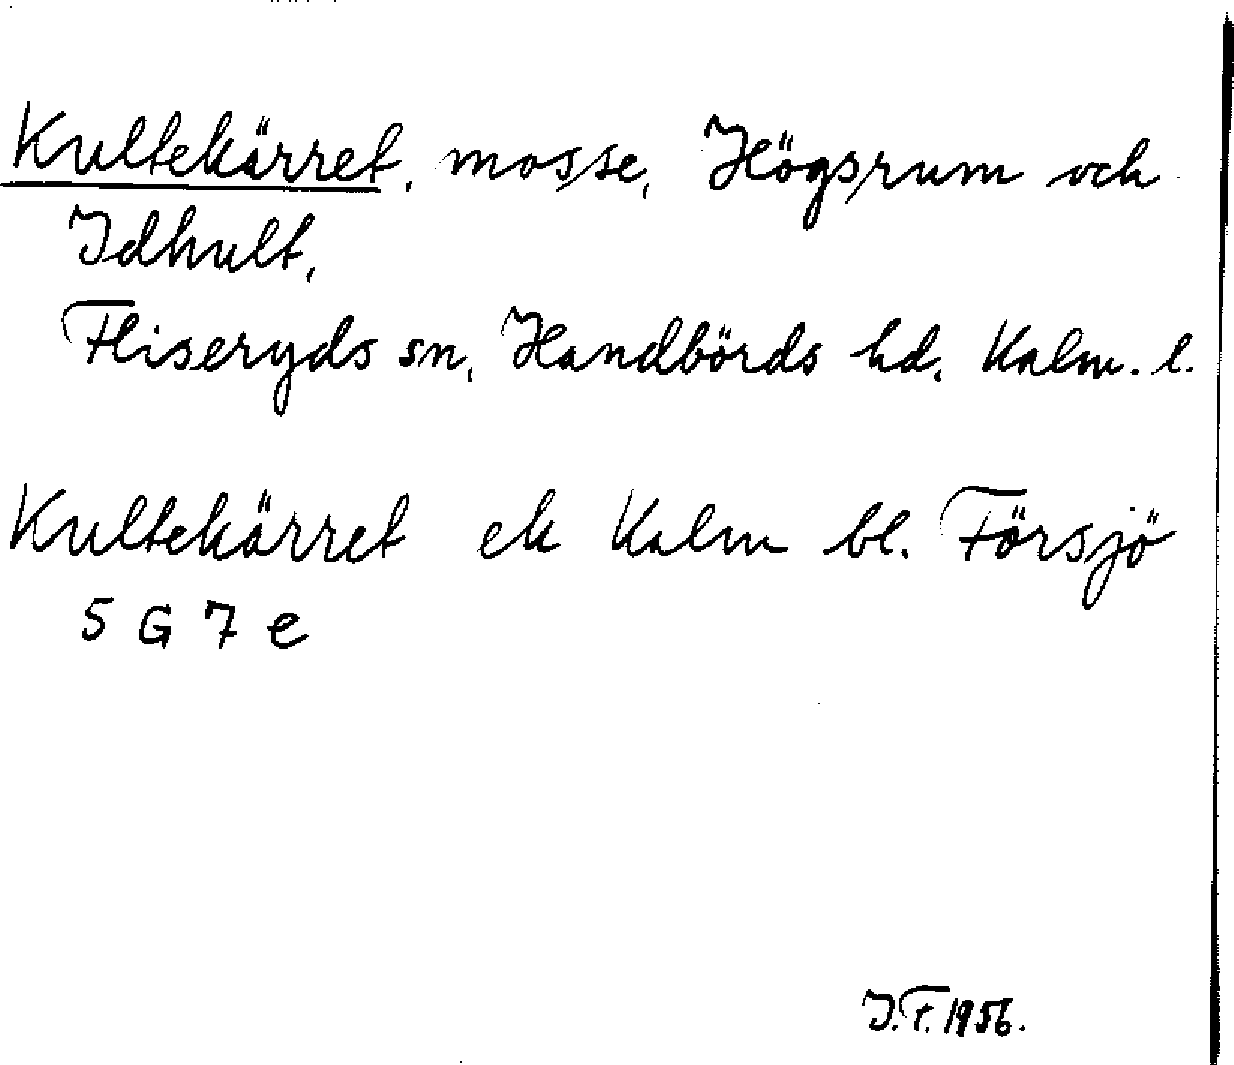 Kultekärret, mosse, Högsrum och
Idhult,
Fliseryds sn, Handbörds hd, Kalm. l.
Kultekärret ek Kalm bl. Försjö
5 G 7 e
I.F. 1956.